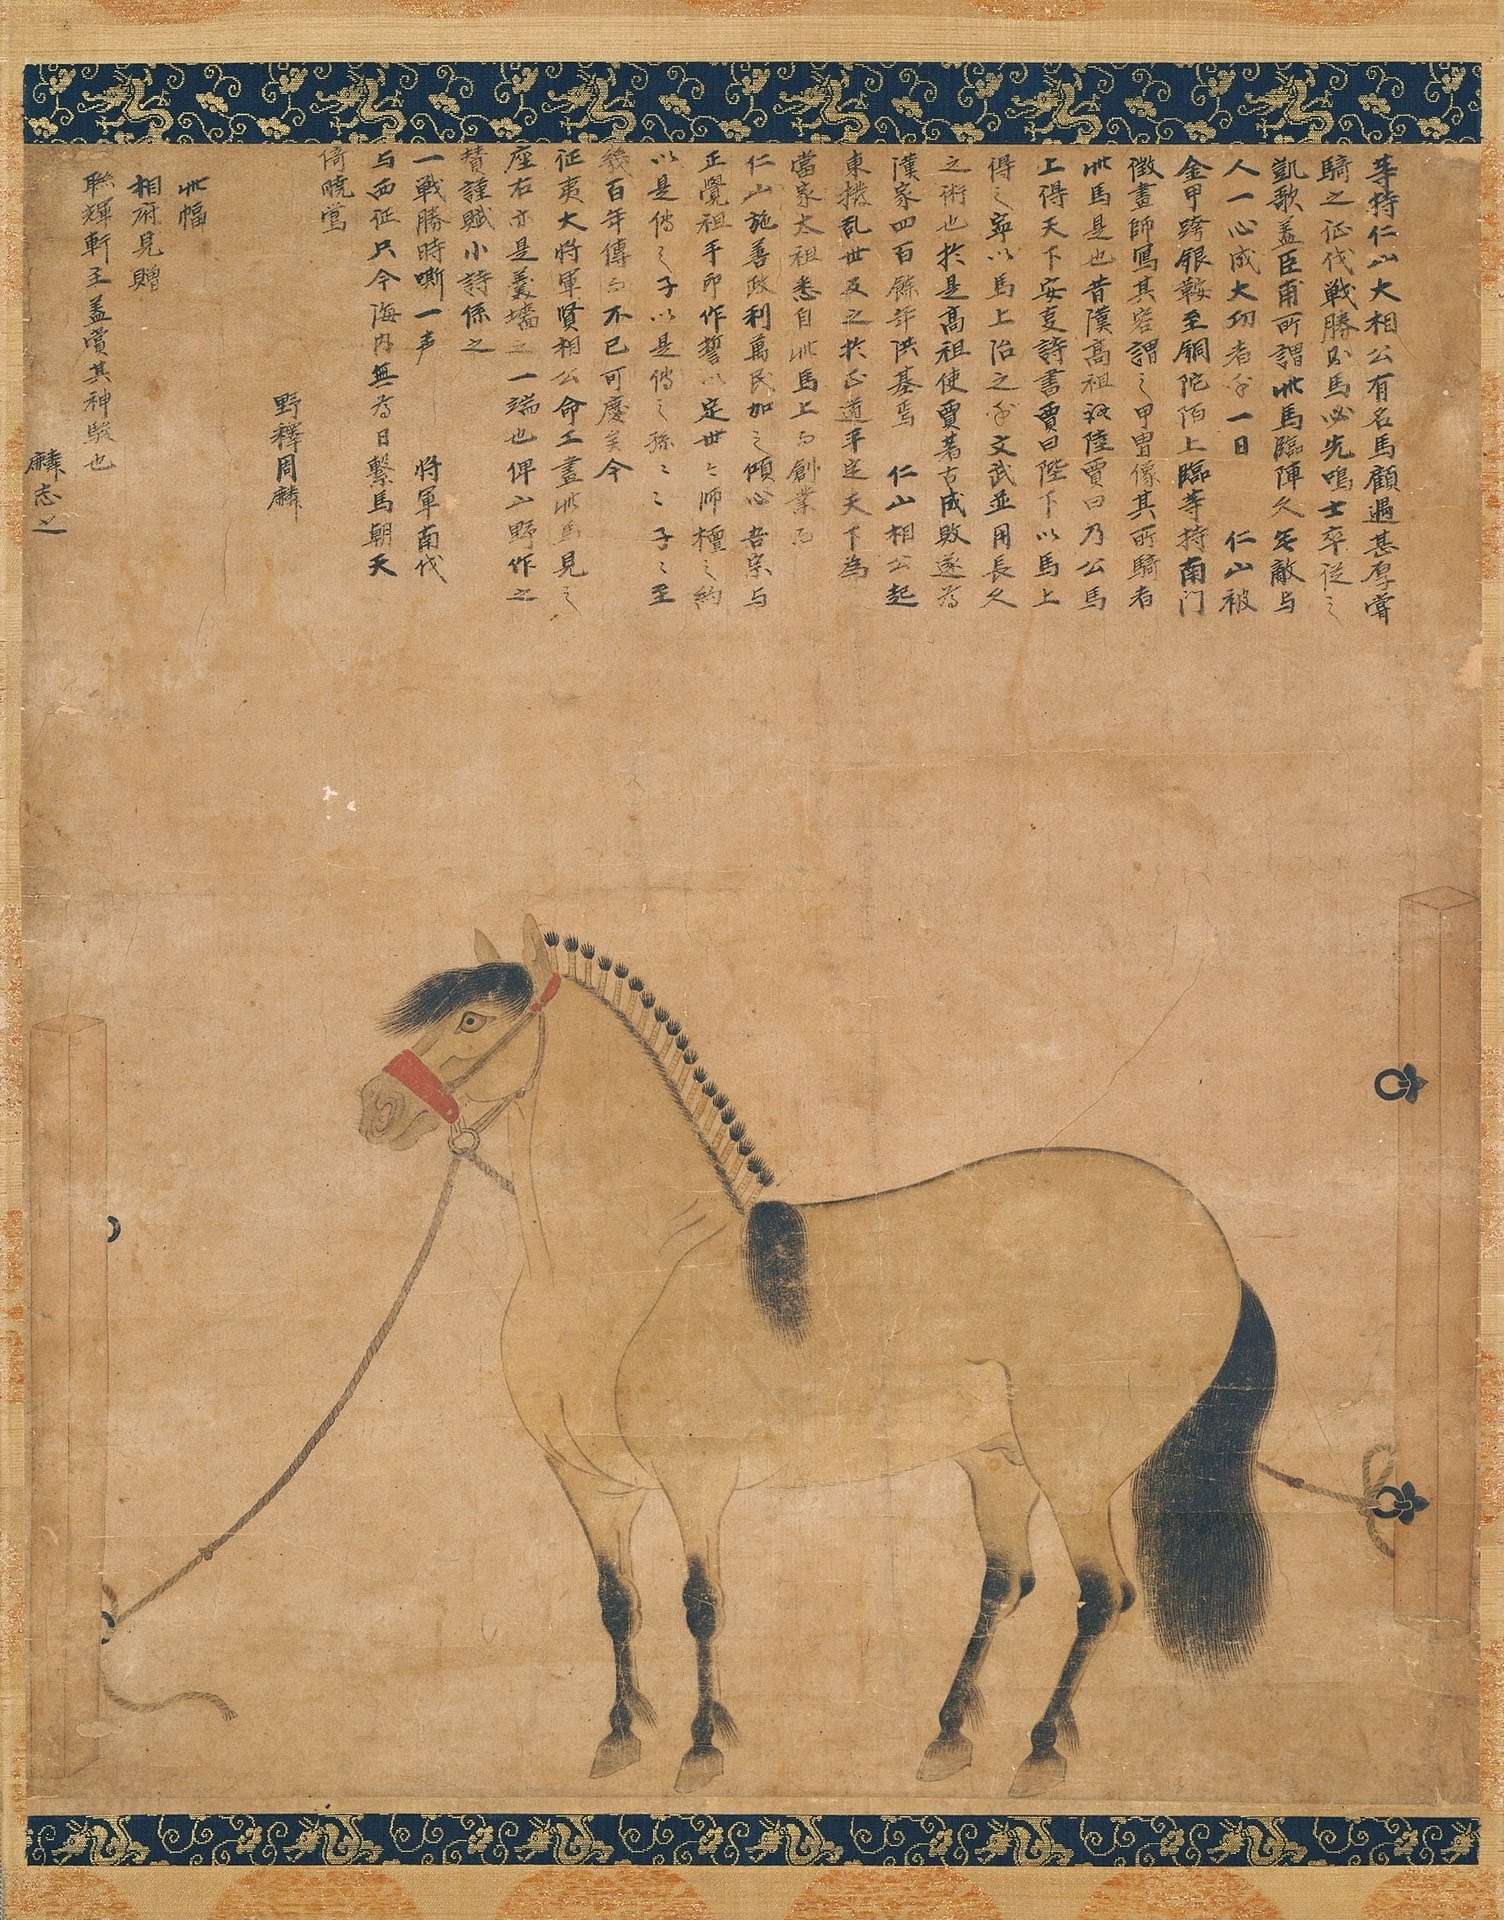 等持仁山大相公有名馬顧遇甚厚嘗
騎之征伐戦勝則馬必先鳴士卒従之
凱歌蓋臣甫所謂此馬臨陣久無敵与
人一心成大功者乎一日 仁山被
金甲跨銀鞍至銅陀陌上臨等持南门
徴畫師寫其容謂之甲冑像其所騎者
此馬是也昔漢高祖 陸賈曰乃公馬
上得天下安事詩書賈曰陛下以馬上
得之寧以馬上治之乎文武並用長久
之術也於是高祖使賈著古成敗遂為
漢家四百餘年洪基焉 仁山相公起
東撥乱世反之於正道平定天下為
當家太祖悉自此馬上而創業而
仁山施善政利萬民加之傾心吾宗与
正覺祖手印作誓以定世々師檀之約
以是傳之子以是傳之孫々々子々至
幾百年傳而不已可慶矣今
征夷大将軍賢相公命工畫此馬見之
座右亦是羹墻之一端也俾山野作之
賛謹賦小詩係之
一戦勝時嘶一声 将軍南伐
与西征只今海内無為日繋馬朝天
倚暁鶯
野釋周麟
此幅
相府見贈
聯輝軒主蓋賞其神駿也
麟志之